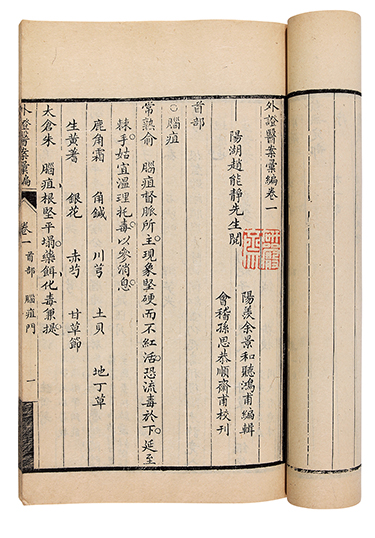 外證醫案彙編卷一
陽湖趙能靜先生閱
陽羨余景和聽鴻甫編輯
會稽孫思恭順齋甫校刊
首部
○腦疽
常熟俞 腦疽督脈所主。現象堅硬而不紅活。恐流毒於下。延至
棘手。姑宜溫理托毒。以參消息。
鹿角霜 角鍼 川芎 土貝 地丁草
生黃耆 銀花 赤芍 甘草節
太倉朱 腦疽根堅平塌。藥餌化毒兼提。
外證醫案彙編 卷一 首部 腦疽門 一